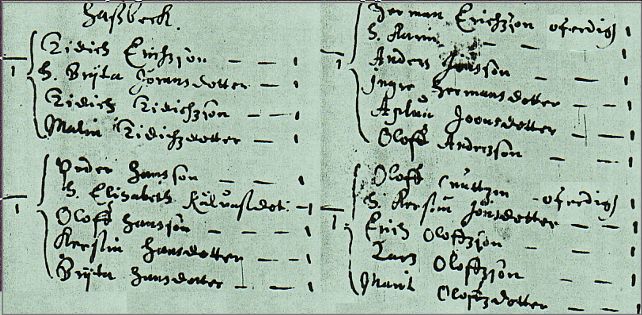 Hassbeck.
1 Didich Erichsson — — 1
h. Brijta Jöransdotter — — 1
Didich Didichsson — — 1
Malin Didichzdotter — — 1
1 Peder Hansson — — 1
h. Elisabeth — 1
Oloff Hansson — — — 1
Kerstin Hansdotter — — 1
Brijta Hansdotter — — 1
1 Herman Erichsson oferdig 1
h. Karin — — — 1
Anders Jonsson — — 1
Ingre Hermansdotter — — 1
Joonsdotter — — 1
Oloff Andersson — — 1
1 Oloff — oferdig 1
h. Kerstin Jönsdotter — — 1
Erich Oloffzson — — 1
Larz Oloffzson — — 1
Marit Oloffzdotter — — 1